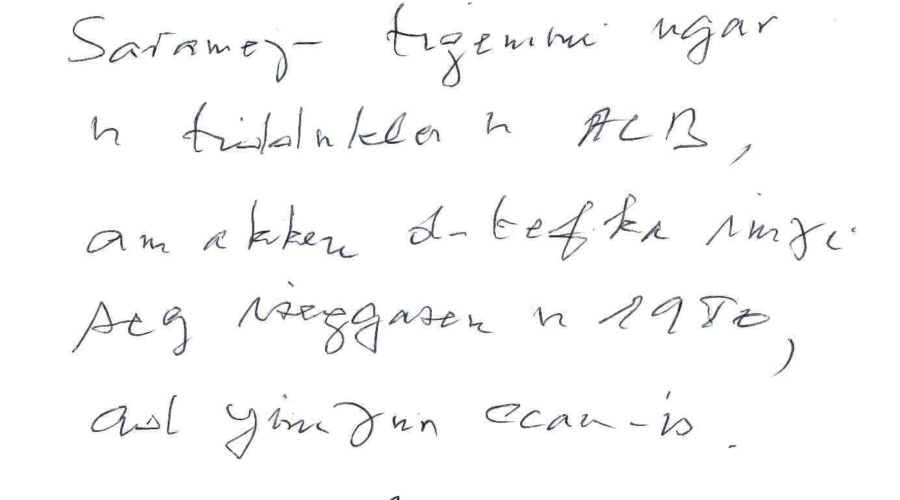 Sarameɣ- tigemmi ugar
n tiddukla n ACB,
am akken d-tefka imɣi
seg iseggasen n 1980,
ad yimɣur ccan-is.